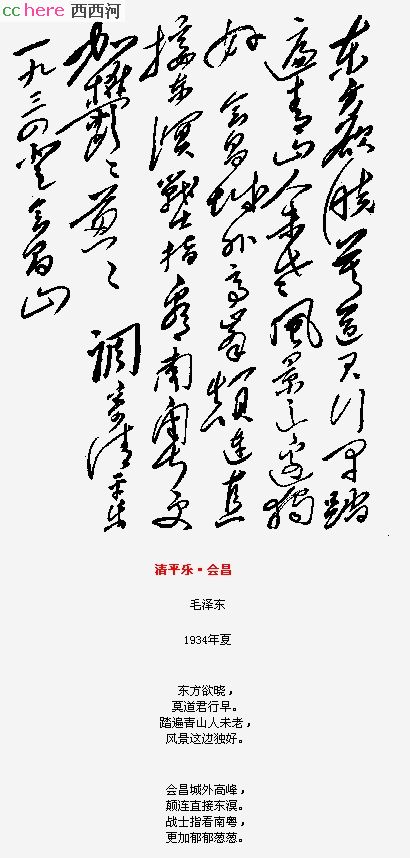 cchere 西西河
东方欲晓莫道君行早踏
遍青山人未老風景这边獨
好 会昌城外高峰顛連直
接东溟戰士指看南粤更
加鬱々葱々 調寄清平乐
一九三四登会昌山
清平乐·会昌
毛泽东
1934年夏
东方欲晓，
莫道君行早。
踏遍青山人未老，
风景这边独好。
会昌城外高峰，
颠连直接东溟。
战士指看南粤，
更加郁郁葱葱。